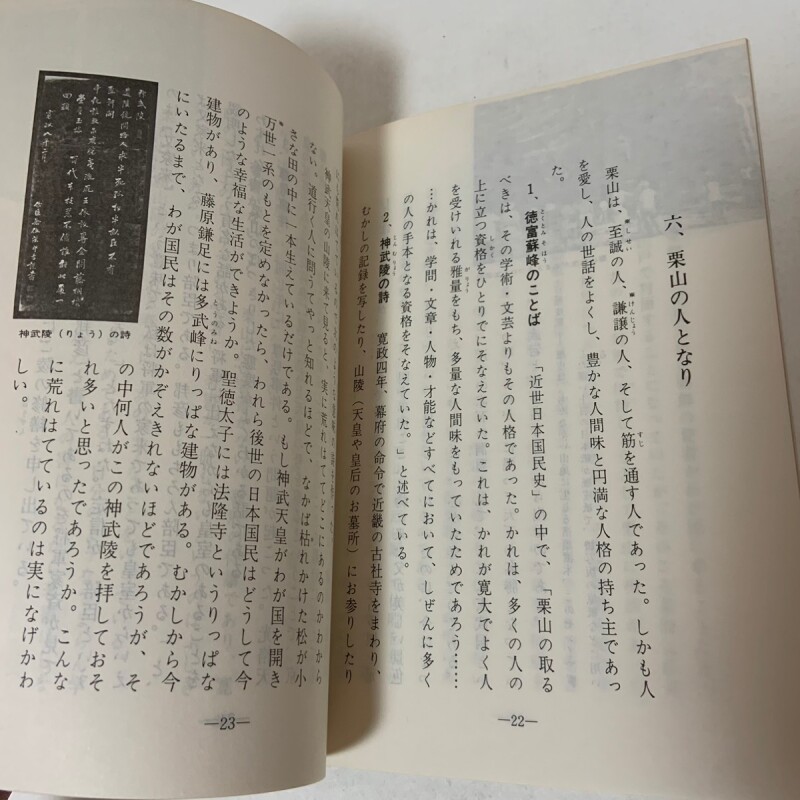 六、栗山の人となり
栗山は、至誠の人、謙譲の人、そして筋を通す人であった。しかも人
を愛し、人の世話をよくし、豊かな人間味と円満な人格の持ち主であっ
た。
1、徳富蘇峰のことば 「近世日本国民史」の中で、「栗山の取る
べきは、その学術・文芸よりもその人格であった。かれは、多くの人の
上に立つ資格をひとりでにそなえていた。これは、かれが寛大でよく人
を受けいれる雅量をもち、多量な人間味をもっていたためであろう……
…かれは、学問・文章・人物・才能などすべてにおいて、しぜんに多く
の人の手本となる資格をそなえていた。」と述べている。
2、神武陵の詩 寛政四年、幕府の命令で近畿の古社寺をまわり、
むかしの記録を写したり、山陵（天皇や皇后のお墓所）にお参りしたり
—22—
神武天皇の山陵に来て見ると、実に荒れはててどこにあるのかわから
ない。道行く人に問うてやっと知れるほどで、なかば枯れかけた松が小
さな田の中に一本生えているだけである。もし神武天皇がわが国を開き
万世一系のもとを定めなかったら、われら後世の日本国民はどうして今
のような幸福な生活ができようか。聖徳太子には法隆寺というりっぱな
建物があり、藤原鎌足には多武峰にりっぱな建物がある。むかしから今
にいたるまで、わが国民はその数がかぞえきれないほどであろうが、そ
の中何人がこの神武陵を拝しておそ
れ多いと思ったであろうか。こんな
に荒れはてているのは実になげかわ
しい。
神武陵（りょう）の詩
—23—